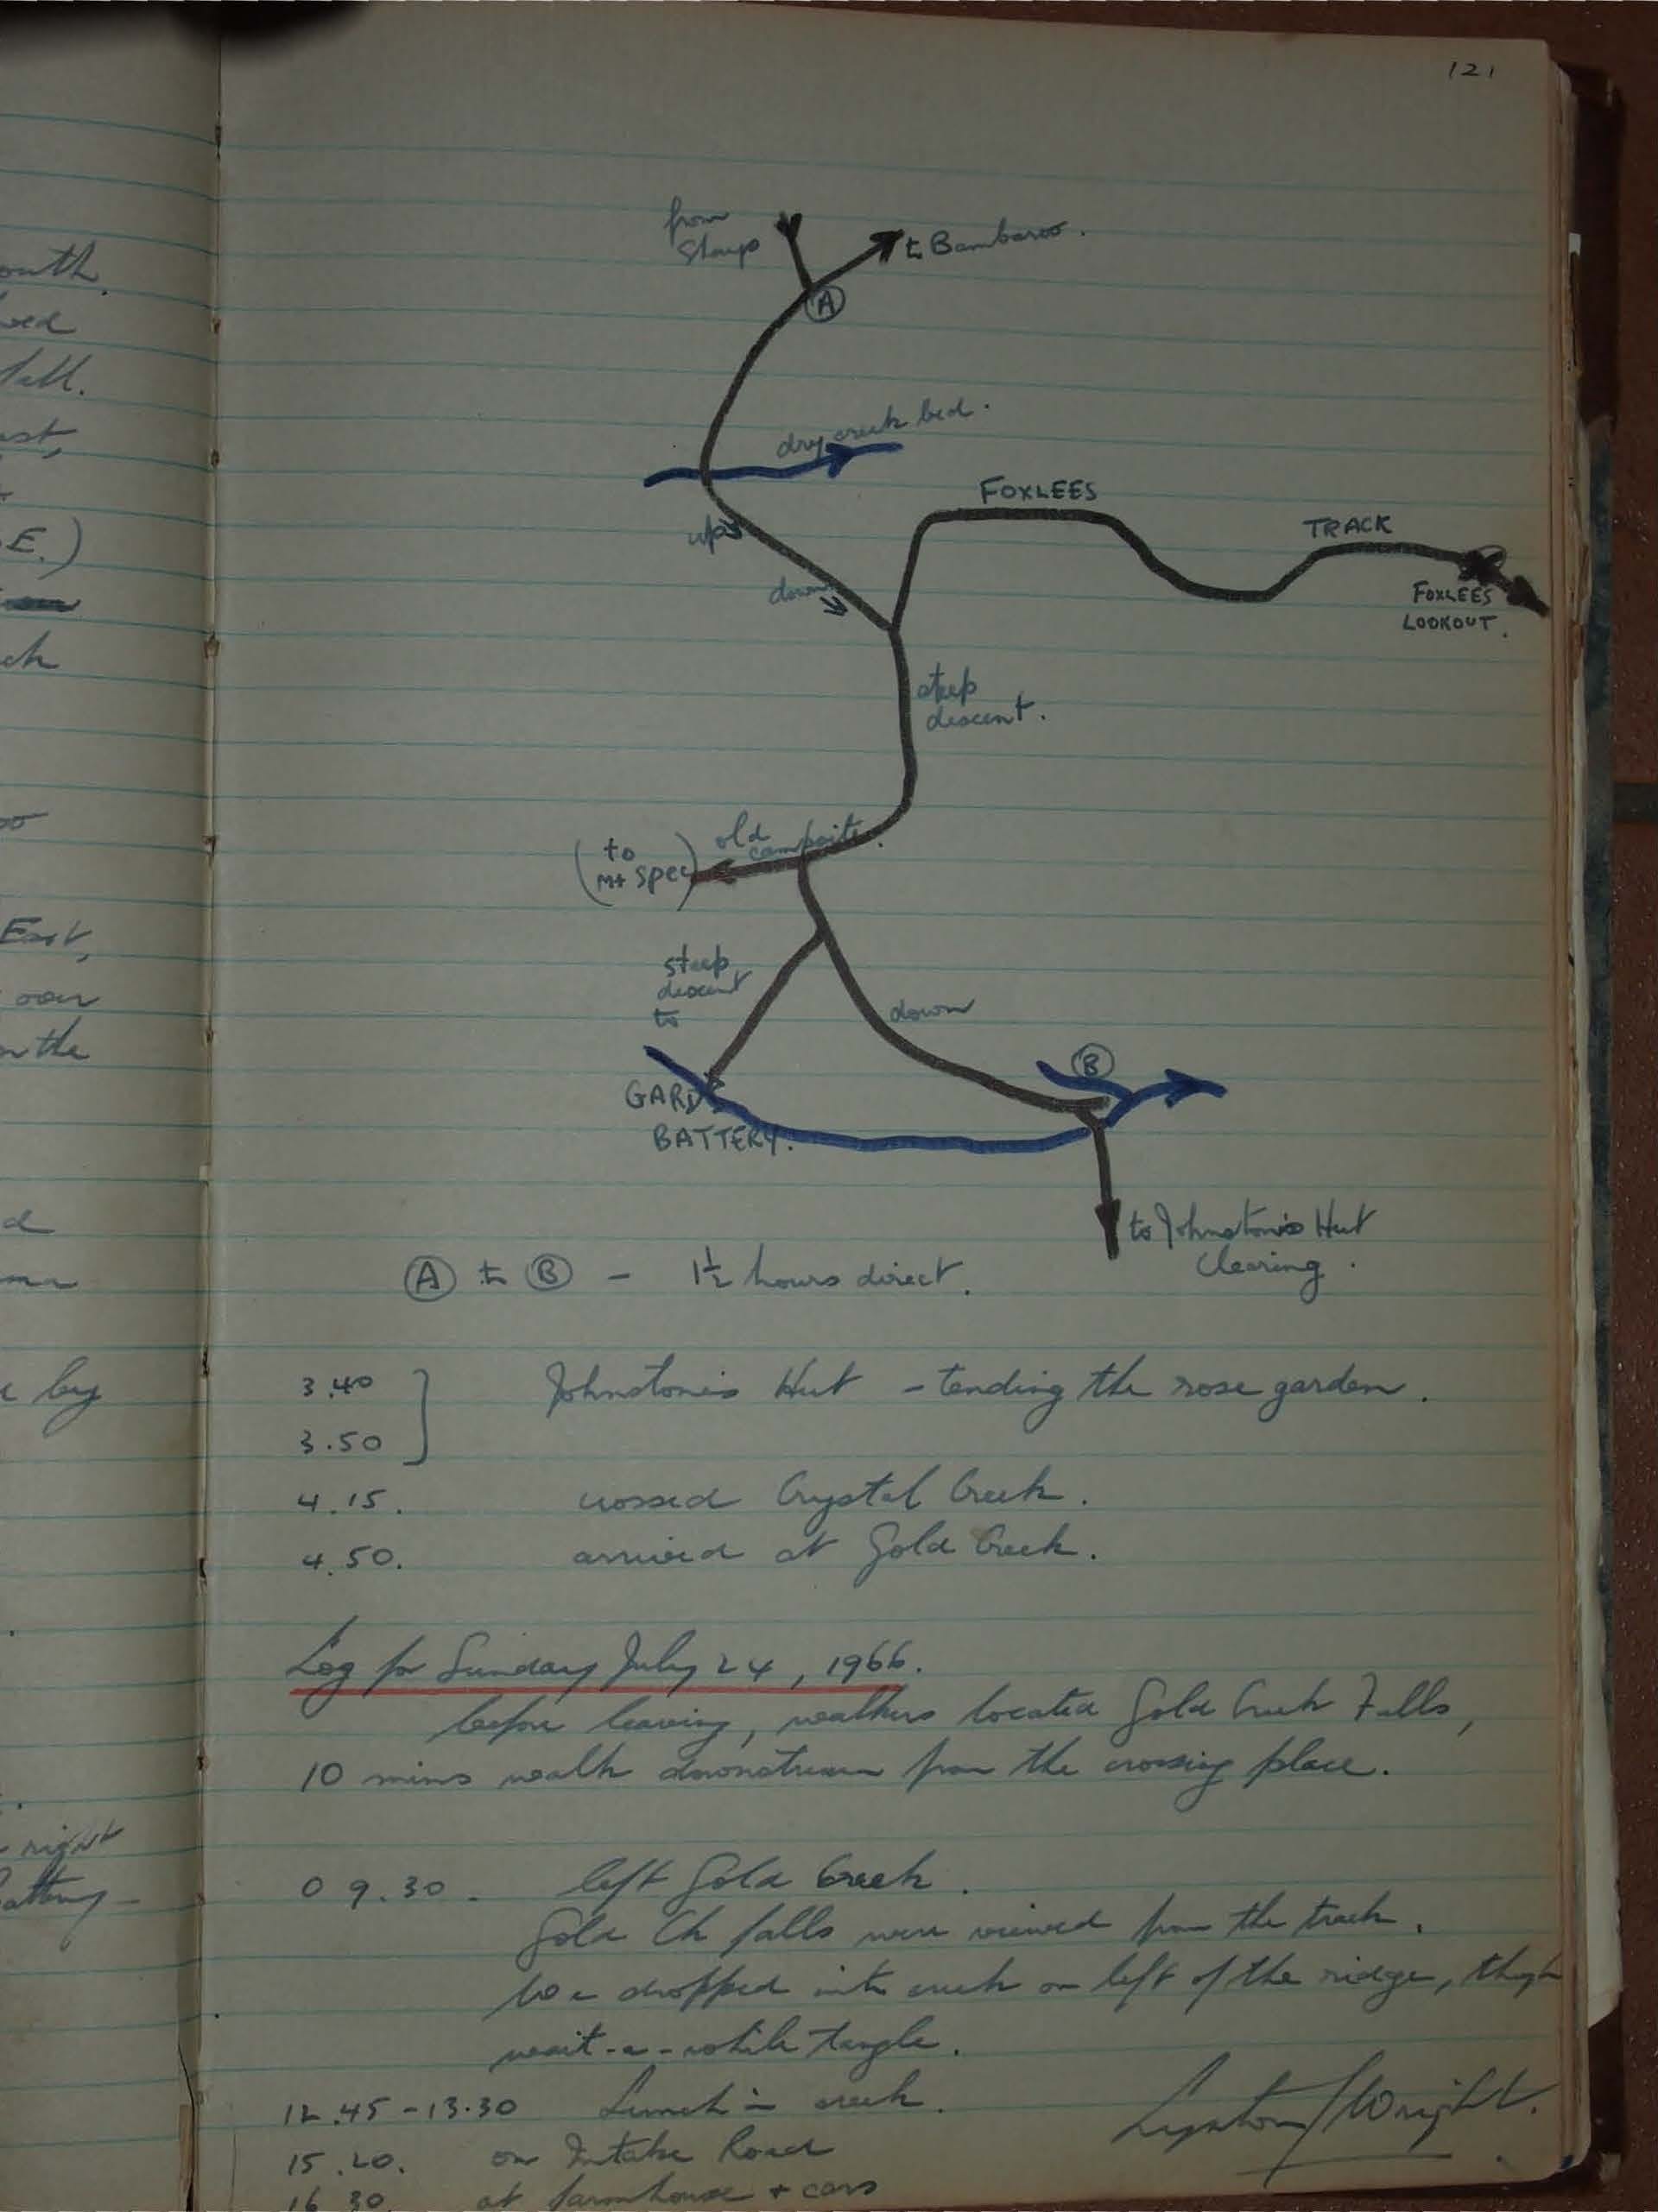 121
from
Sharps
to Bambaroo.
A
dry creek bed.
FOXLEES
TRACK
up
down
FOXLEES
LOOKOUT.
steep
descent.
old
campsite.
(to
Mt Spec)
steep
descent
to
down
B
GARDS
BATTERY.
to Johnstone's Hut
Clearing.
A to B - 1½ hours direct.
3.40 Johnstone's Hut - tending the rose garden.
3.50
4.15. crossed Crystal Creek.
4.50. arrived at Gold Creek.
Log for Sunday July 24, 1966.
before leaving, walkers located Gold Creek Falls,
10 mins walk downstream from the crossing place.
09.30. left Gold Creek.
Gold Ck falls were viewed from the track.
We dropped into creek on left of the ridge, though
wait-a-while tangle.
12.45-13.30 Lunch in creek.
15.20. on Intake Road
16.30 at farmhouse + cars
Wright.
outh.
fall.
E.)
East,
over
on the
by
right